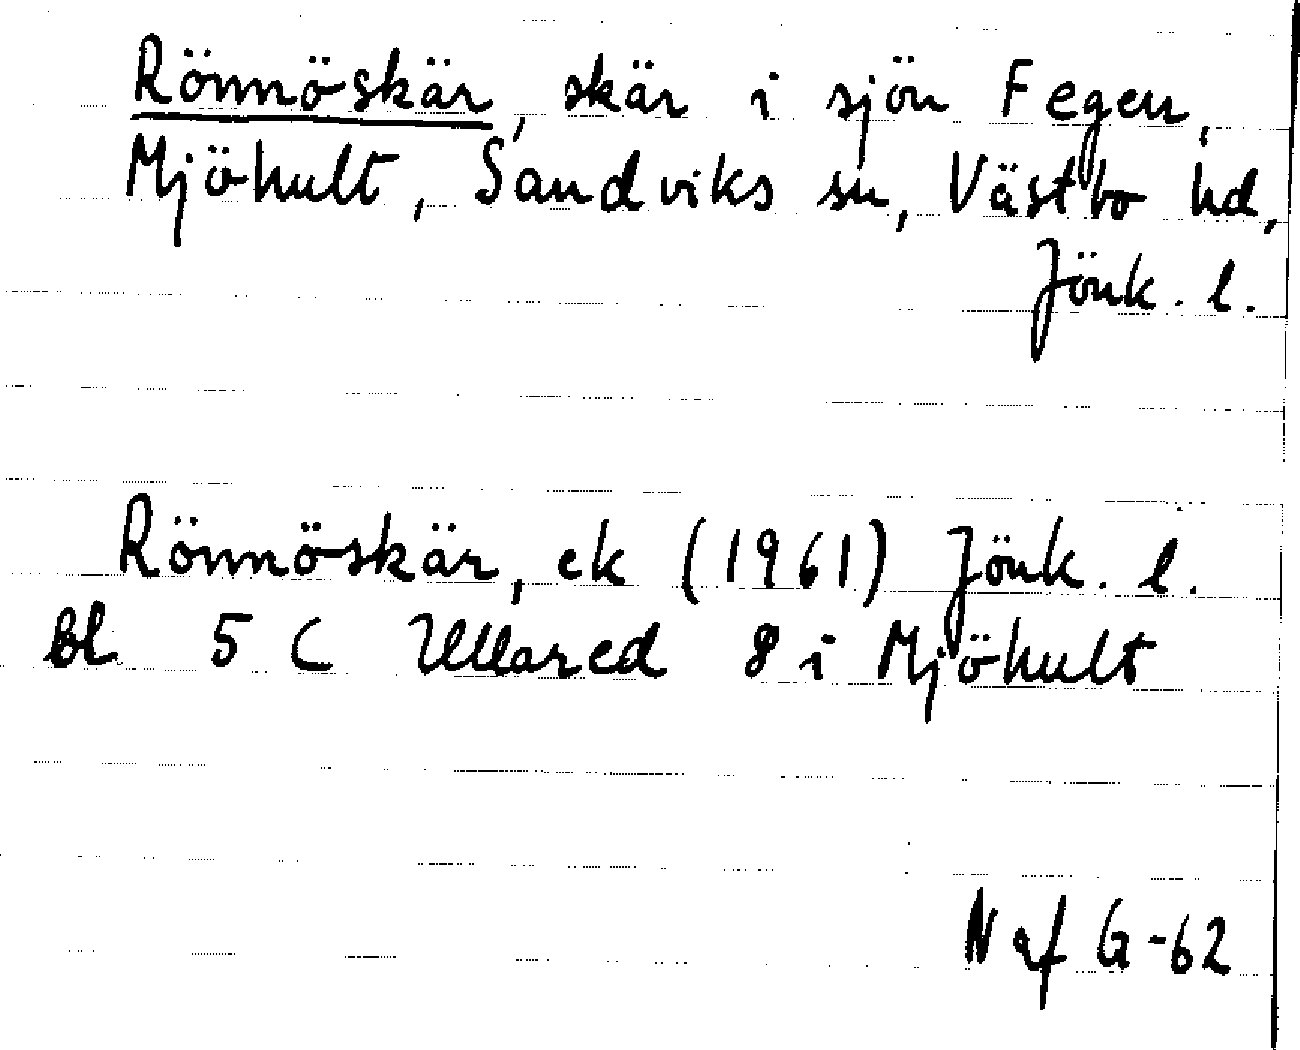 Rönnöskär, skär i sjön Fegen,
Mjöhult, Sandviks sn, Västbo hd,
Jönk. l.
Rönnöskär, ek (1961) Jönk. l.
bl 5 C Ullared 8 i Mjöhult
N af G-62